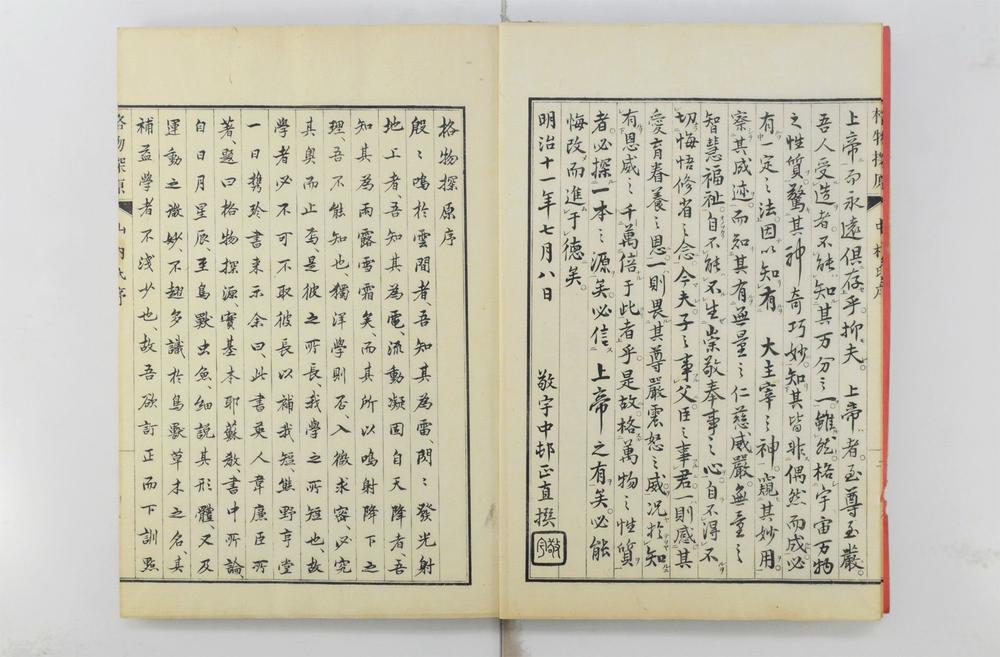 上帝而永遠俱存乎抑夫。上帝者。至尊至嚴。
吾人受造者。不能知其万分之一。雖然格宇宙万物
之性質。驚其神奇巧妙。知其皆非偶然而成。必
有一定之法。因以知有大主宰之神。窺其妙用。
察其成迹。而知其有無量之仁慈威嚴。無量之
智慧福祉。自不能不生崇敬奉事之心。自不得不
切悔悟修省之念。今夫子之事父。臣之事君。一則感其
愛育眷養之恩。一則畏其尊嚴震怒之威。况於知
有恩威之千萬倍于此者乎。是故格萬物之性質
者。必探一本之源矣。必信上帝之有矣。必能
悔改而進于德矣。
明治十一年七月八日
敬宇中邨正直撰
敬宇
格物探原序
殷〻鳴於雲間者、吾知其為雷、閃〻發光射
地上者、吾知其為電、流動凝固自天降者、吾
知其為雨露雪霜矣、而其所以鳴射降下之
理、吾不能知也、獨洋學則否、入微求密、必究
其奥而止焉、是彼之所長、我學之所短也、故
學者必不可不取彼長以補我短、熊野亨堂
一日携於書来示余曰、此書英人韋廉臣所
著、題曰格物探源、實基本耶蘇教、書中所論、
自日月星辰、至鳥獸虫魚、細説其形體、又及
運動之微妙、不趐多識於鳥獸草木之名、其
補益學者不淺少也、故吾欲訂正而下訓點
格物探原
山内氏序